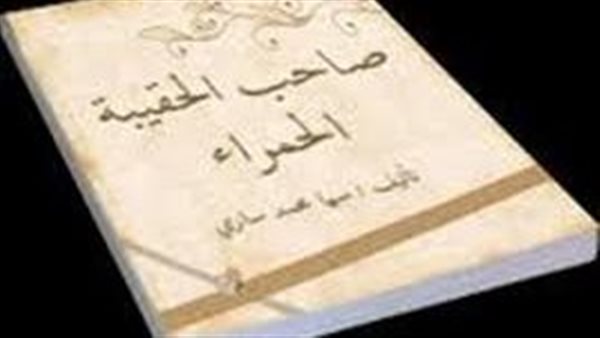 صاحب الحقيبة
الحمراء
تأليف / سها محمد ساري